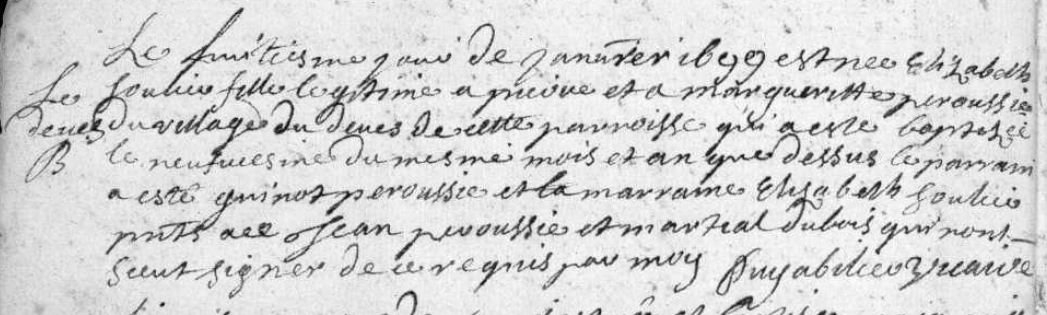 Le huitiesme jour de janvier 1699 est nee Elizabeth
Le Soulier fille legitime a pierre et a margueritte peroussie
deves du village du deves de cette parroisse qui a este baptizee
B le neufviesme du mesme mois et an que dessus le parrain
a esté guinot peroussie et la marraine Elisabeth Soulier
pnts a ce Jean peroussie et martial dubois qui n'ont
sceut signer de ce requis par moy Puyabilier vicaire